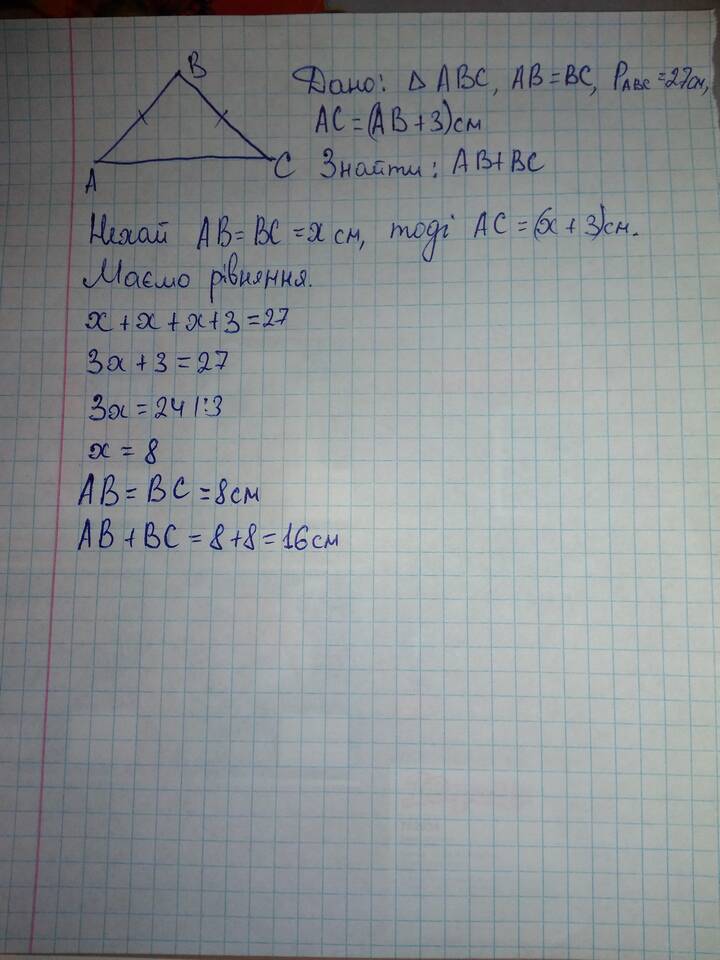 B
A
C
Дано: Δ ABC, AB=BC, P ABC =27см,
AC=(AB+3)см
Знайти: AB+BC
Нехай AB=BC=x см, тоді AC=(x+3)см.
Маємо рівняння.
x+x+x+3=27
3x+3=27
3x=24 |:3
x=8
AB=BC=8см
AB+BC=8+8=16см